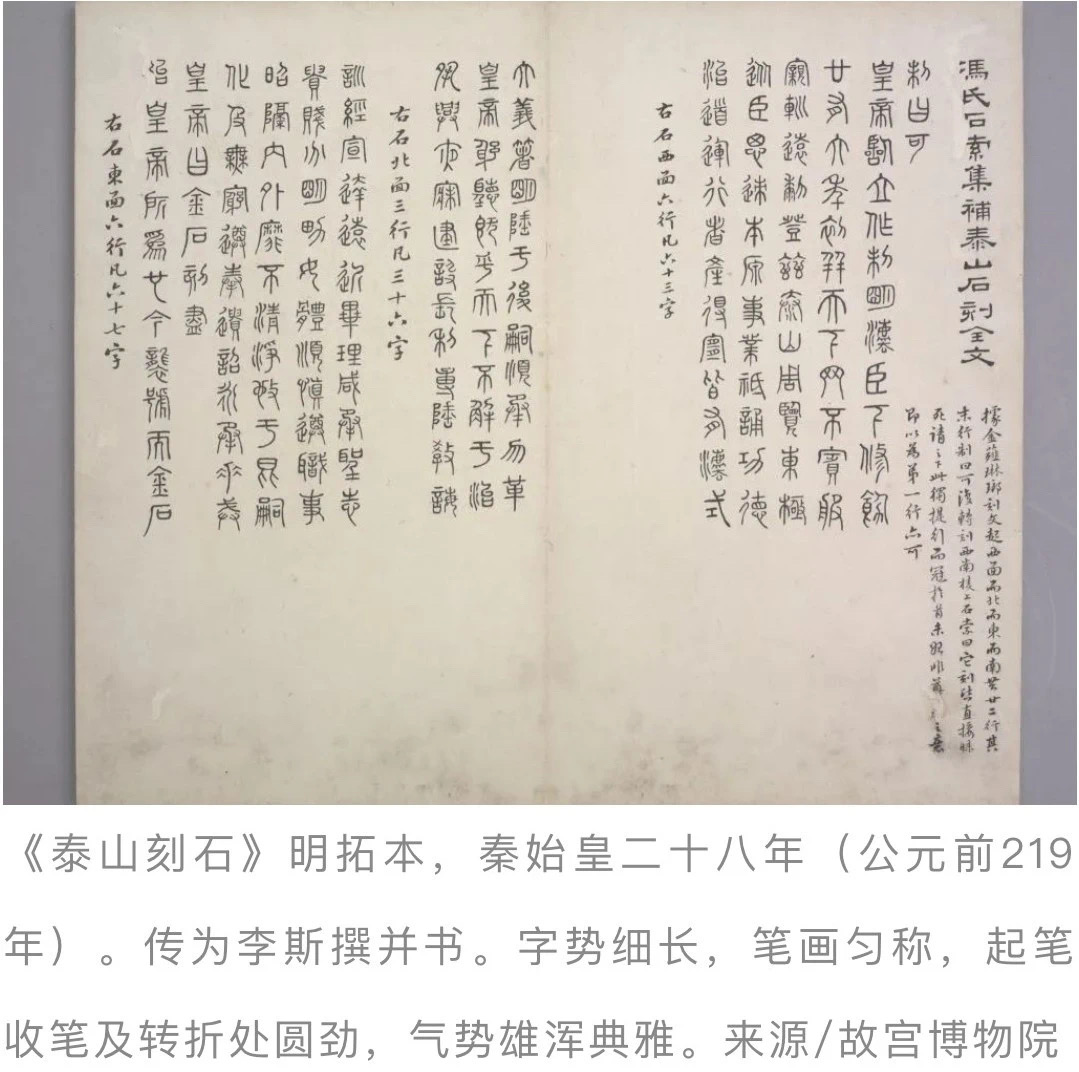 馮氏石索集補泰山石刻全文
據金薤琳瑯刻文起西面而北而東而南共廿二行其
末行制曰可復轉刻西南棱上石索曰它刻皆直接昧
死請之下此獨提行而冠於首未
即以為第一行亦可
制曰可
皇帝臨立作制明灋臣下修飭
廿有六年初并天下罔不賓服
寴軓遠黎登茲泰山周覽東極
從臣思迹本原事業祗誦功德
治道運行者產得宜皆有灋式
右石西面六行凡六十三字
大義箸明陲于後嗣順承勿革
皇帝躬聽既平天下不解于治
夙興夜寐建設長利專隆教誨
右石北面三行凡三十六字
訓經宣達遠近畢理咸承聖志
貴賤分明男女體順慎遵職事
昭隔內外靡不清淨施于昆嗣
化及無窮遵奉遺詔永承重戒
皇帝曰金石刻盡
始皇帝所為也今襲號而金石
右石東面六行凡六十七字
《泰山刻石》明拓本，秦始皇二十八年（公元前219
年）。传为李斯撰并书。字势细长，笔画匀称，起笔
收笔及转折处圆劲，气势雄浑典雅。来源/故宫博物院